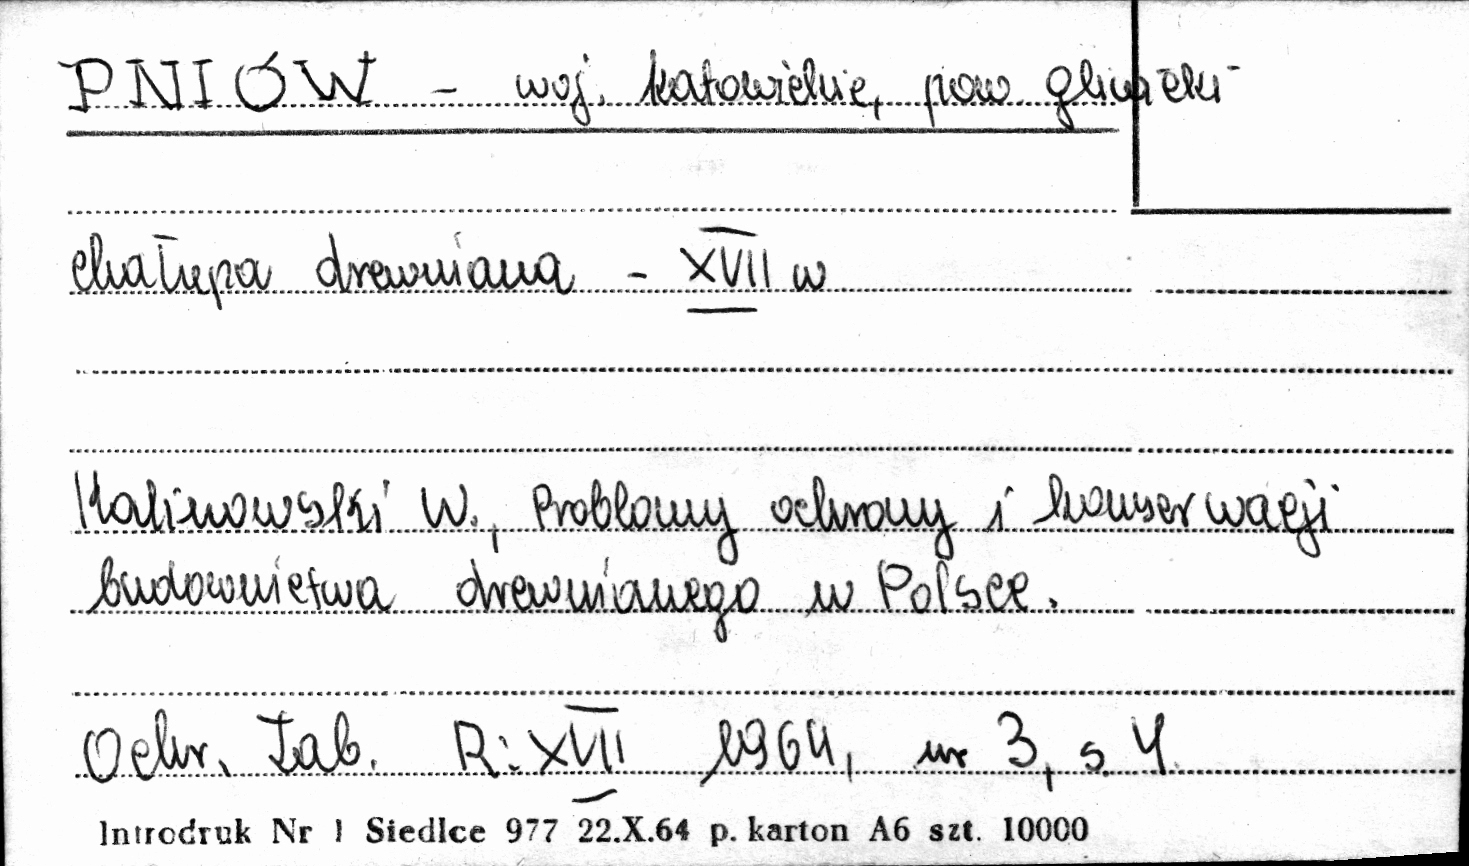 PNIÓW - woj. katowickie, pow gliwicki
chałupa drewniana - XVII w
Kalinowski W., Problemy ochrony i konserwacji
budownictwa drewnianego w Polsce.
Ochr. Zab. R: XVII 1964, nr 3, s. 4
Introdruk Nr 1 Siedlce 977 22.X.64 p. karton A6 szt. 10000